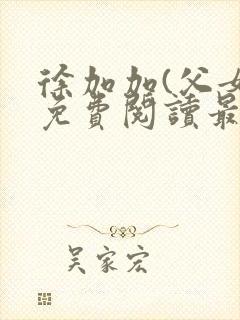 徐加加(父女
免費閱讀最
吴家宏